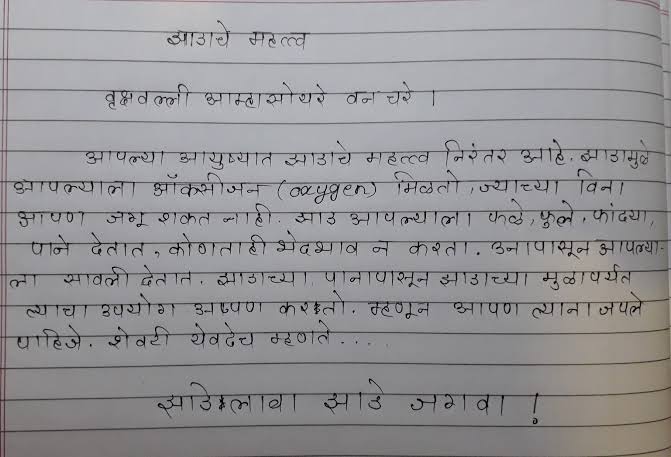 झाडाचे महत्त्व
वृक्षवल्ली आम्हा सोयरे वनचरे ।
आपल्या आयुष्यात झाडाचे महत्त्व निरंतर आहे. झाडामुळे
आपल्याला ऑक्सीजन (oxygen) मिळतो, ज्याच्या विना
आपण जगू शकत नाही. झाड आपल्याला फळे, फुले, फांदया,
पाने देतात, कोणताही भेदभाव न करता. उनापासून आपल्या-
ला सावली देतात. झाडाच्या पानापासून झाडाच्या मुळापर्यंत
त्याचा उपयोग आपण करतो. म्हणून आपण त्याना जपले
पाहिजे. शेवटी येवढेच म्हणते....
झाडे लावा झाडे जगवा !